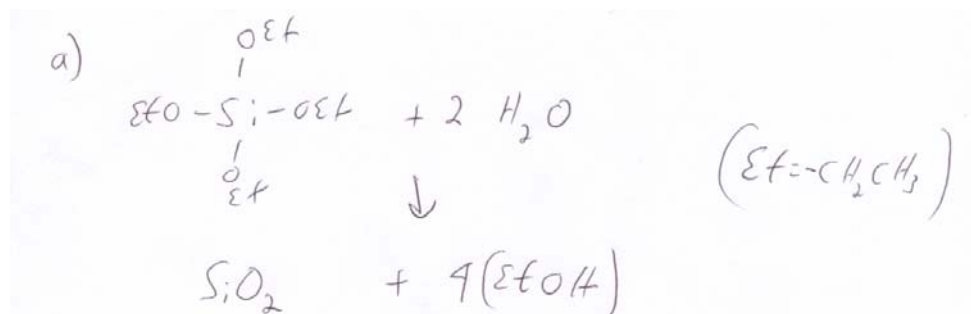 a)
OEt
EtO-Si-OEt + 2 H2O
O
Et
(Et=-CH2CH3)
↓
SiO2 + 4(EtOH)